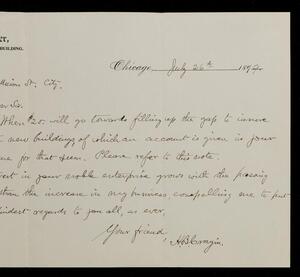 BUILDING.
Chicago, July 26th 1892
Main St. City.
When $25. will go towards filling up the gap to insure
new buildings of which an account is given in your
me for that seem. Please refer to this note.
in your noble enterprise grows with the passing
than the increase in my business, compelling me to put
kindest regards to you all, as ever,
Your friend,
H B Cragin.